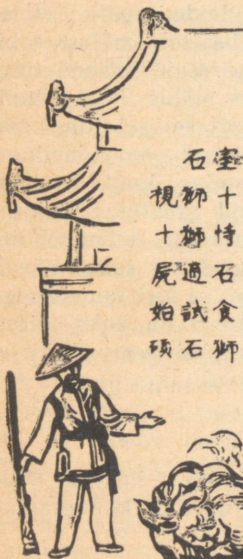 室十恃石食獅
石獅獅適試石
視十屍始碩